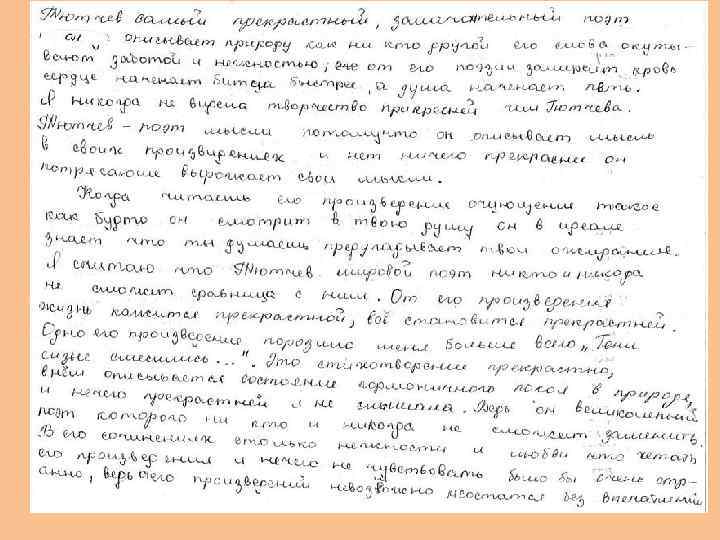 Тютчев самый прекрастный, замечательный поэт
он описывает природу как ни кто другой его слова окуты-
вают заботой и нежностью; от его поэзии замирает кровь
сердце наченает битса быстрее, а душа наченает петь.
Я никогда не видела творчество прикрсней чем Тютчева.
Тютчев – поэт мысли потамучто он описывает мысль
в своих произвидениех и нет ничего прекрасние он
потресающие выражает свои мысли.
Когда читаешь его произведение ощющения такое
как будто он смотрит в твою душу он в идеале
знает что ты думаешь предугадывает твои ожидание.
Я считаю что Тютчев мировой поэт никто и никода
не сможит сравница с ним. От его произведения
жизнь кажится прекрастной, всё становится прекрастней.
Одно его произвдение поразило меня больше всего „Тени
сизые смесились...". Это стихотворение прекрастно,
в нём описывается состояние гормоничного покоя в природе,
и нечего прекрастней я не слышила. Ведь он великолепный
поэт которого ни кто и никогда не сможит заменить.
В его сочинениях столько нежности и любви что четать
его произведения и нечего не чувствовать было бы очень стр-
анно, ведь от его произведений невозможно неостатся без впечатлений